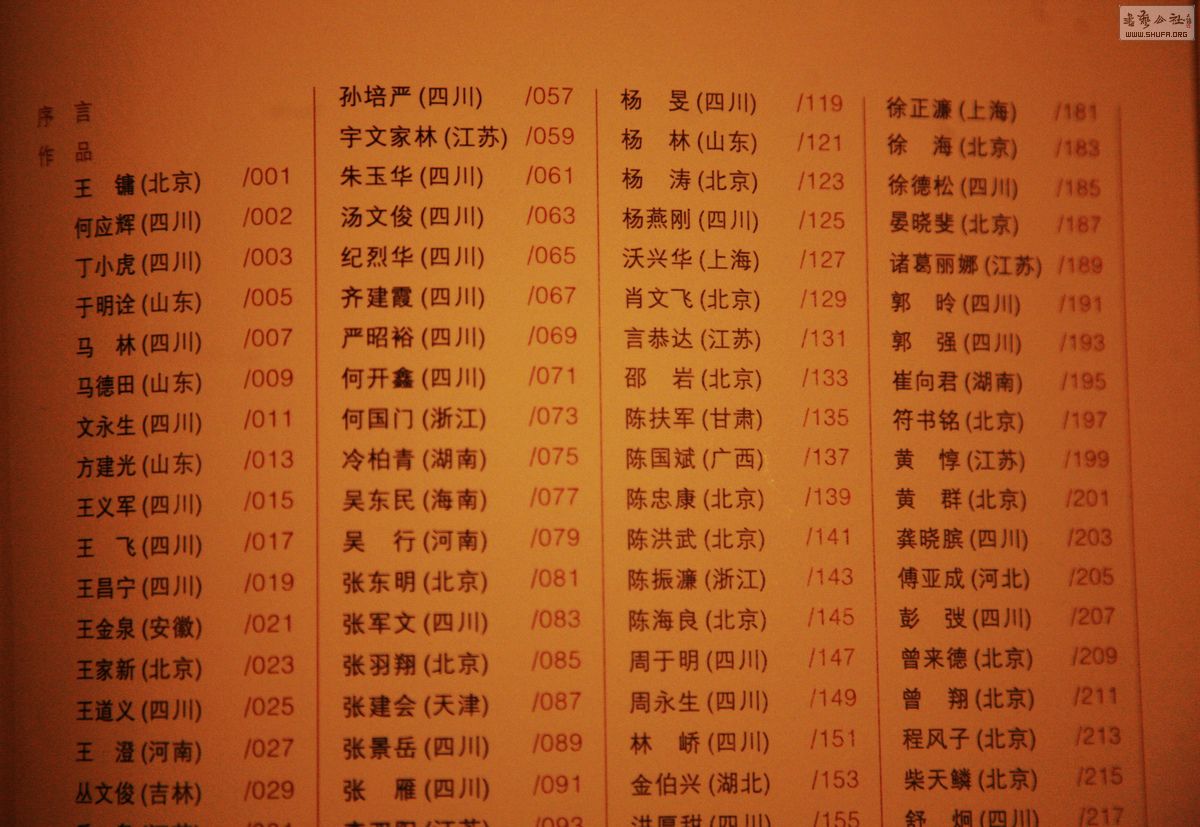 序 言
作 品
王 镛(北京) /001
何应辉(四川) /002
丁小虎(四川) /003
于明诠(山东) /005
马 林(四川) /007
马德田(山东) /009
文永生(四川) /011
方建光(山东) /013
王义军(四川) /015
王 飞(四川) /017
王昌宁(四川) /019
王金泉(安徽) /021
王家新(北京) /023
王道义(四川) /025
王 澄(河南) /027
丛文俊(吉林) /029
孙培严(四川) /057
宇文家林(江苏) /059
朱玉华(四川) /061
汤文俊(四川) /063
纪烈华(四川) /065
齐建霞(四川) /067
严昭裕(四川) /069
何开鑫(四川) /071
何国门(浙江) /073
冷柏青(湖南) /075
吴东民(海南) /077
吴 行(河南) /079
张东明(北京) /081
张军文(四川) /083
张羽翔(北京) /085
张建会(天津) /087
张景岳(四川) /089
张 雁(四川) /091
/093
杨 旻(四川) /119
杨 林(山东) /121
杨 涛(北京) /123
杨燕刚(四川) /125
沃兴华(上海) /127
肖文飞(北京) /129
言恭达(江苏) /131
邵 岩(北京) /133
陈扶军(甘肃) /135
陈国斌(广西) /137
陈忠康(北京) /139
陈洪武(北京) /141
陈振濂(浙江) /143
陈海良(北京) /145
周于明(四川) /147
周永生(四川) /149
林 峤(四川) /151
金伯兴(湖北) /153
洪厚甜(四川) /155
徐正濂(上海) /181
徐 海(北京) /183
徐德松(四川) /185
晏晓斐(北京) /187
诸葛丽娜(江苏) /189
郭 昤(四川) /191
郭 强(四川) /193
崔向君(湖南) /195
符书铭(北京) /197
黄 惇(江苏) /199
黄 群(北京) /201
龚晓膑(四川) /203
傅亚成(河北) /205
彭 弢(四川) /207
曾来德(北京) /209
曾 翔(北京) /211
程风子(北京) /213
柴天鳞(北京) /215
舒 炯(四川) /217
WWW.SHUFA.ORG